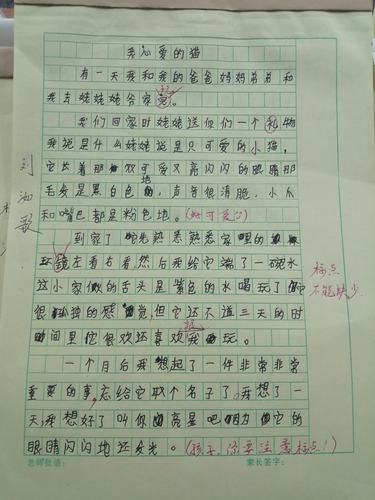 我心爱的猫
有一天我和我的爸爸妈妈弟弟和
我去姥姥爷家玩。
我们回家时姥姥送你们一个礼物
我说是什么姥姥说是只可爱的小猫,
它长着那双可爱又亮闪闪的眼睛那
毛发是黑白色地,声音很清脆,小爪
和嘴巴都是粉色地。(好可爱!)
到家了它先熟悉熟悉家里的
环镜左看右看然后我给它端了一碗水
这小家伙的舌头是紫色的水喝玩了它
很孤独的感觉但它还不道三天的时
间里它很欢还喜欢和我玩。
一个月后我想起了一件非常非常
重要的事,忘给它取个名子了。我想了一
天我想好了叫你亮星吧因为它的
眼睛闪闪地还发光。(孩子,你要注意标点!)
标点
不能缺少
刘
歌
老师批语:
家长签字: